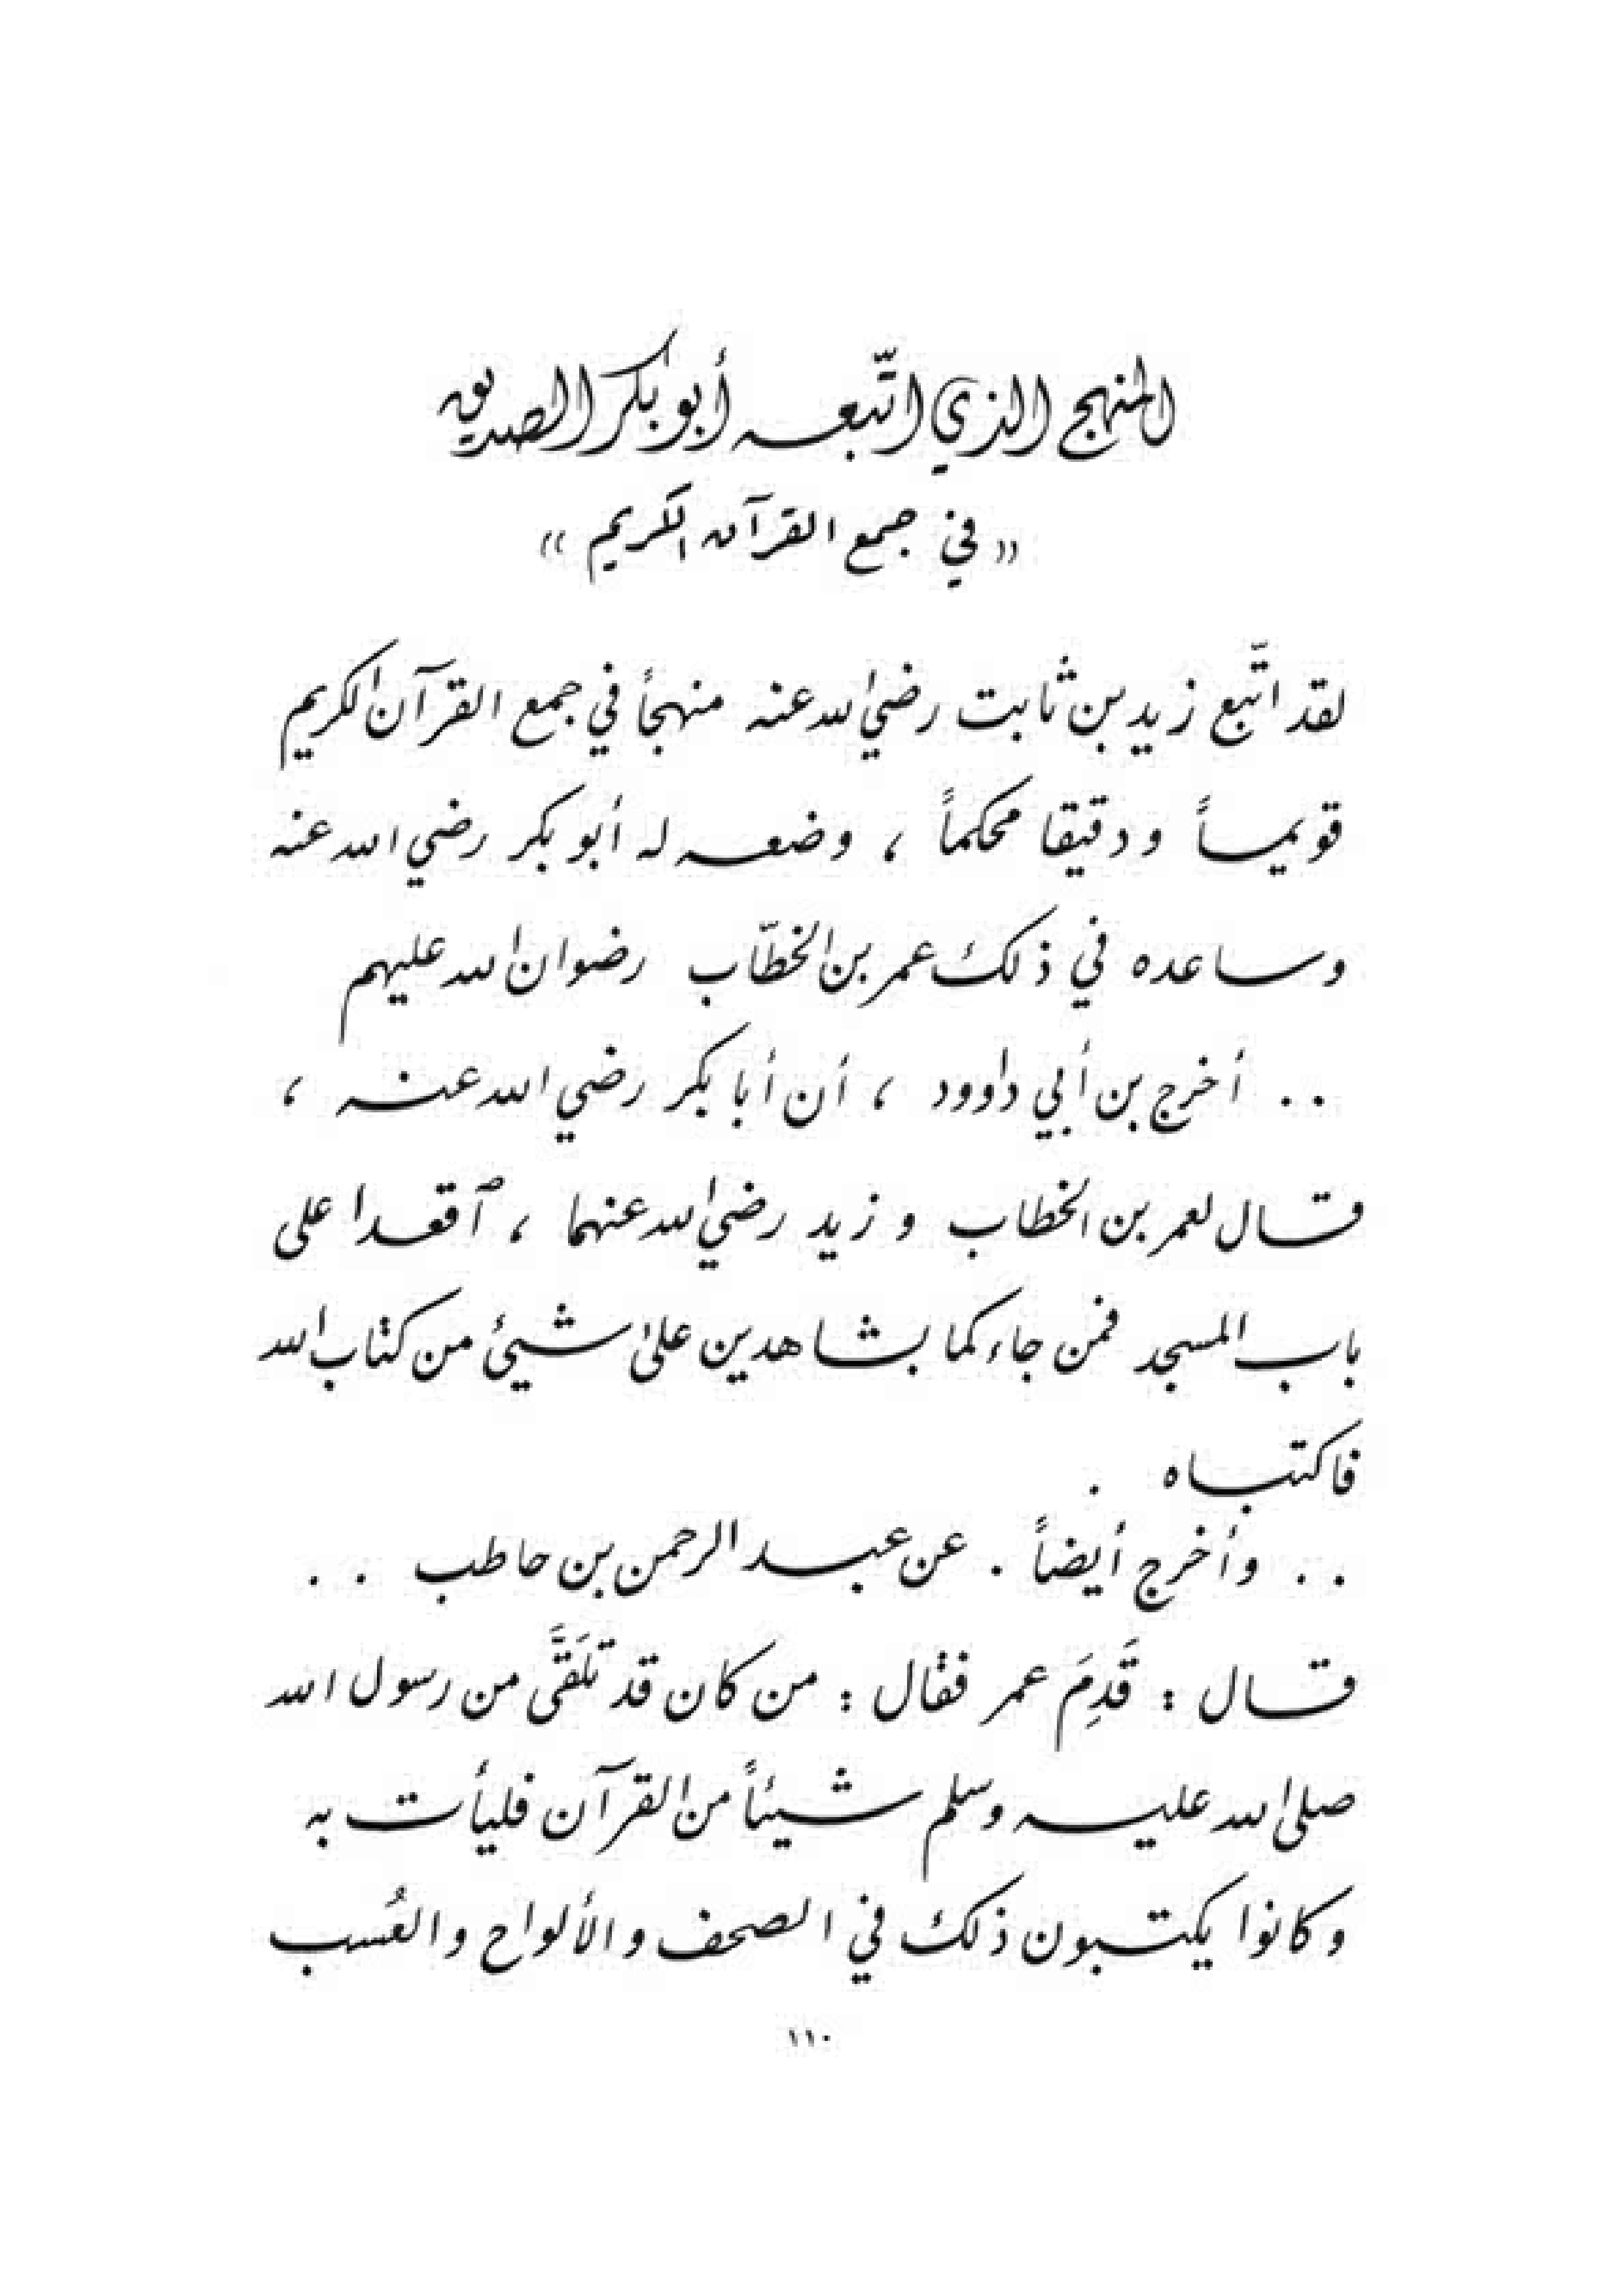 المنهج الذي اتّبعه أبو بكر الصديق
« في جمع القرآن الكريم »
لقد اتّبع زيد بن ثابت رضي الله عنه منهجاً في جمع القرآن الكريم
قويماً ودقيقا محكماً ، وضعه له أبو بكر رضي الله عنه
وساعده في ذلك عمر بن الخطّاب رضوان الله عليهم
.. أخرج بن أبي داوود ، أن أبا بكر رضي الله عنه ،
قال لعمر بن الخطاب و زيد رضي الله عنهما ، ٱقعدا على
باب المسجد فمن جاءكما بشاهدين على شيئ من كتاب الله
فاكتباه .
.. وأخرج أيضاً . عن عبد الرحمن بن حاطب ..
قال : قَدِمَ عمر فقال : من كان قد تَلَقَّى من رسول الله
صلى الله عليه وسلم شيئاً من القرآن فليأت به
وكانوا يكتبون ذلك في الصحف والألواح والعُسب
١١٠